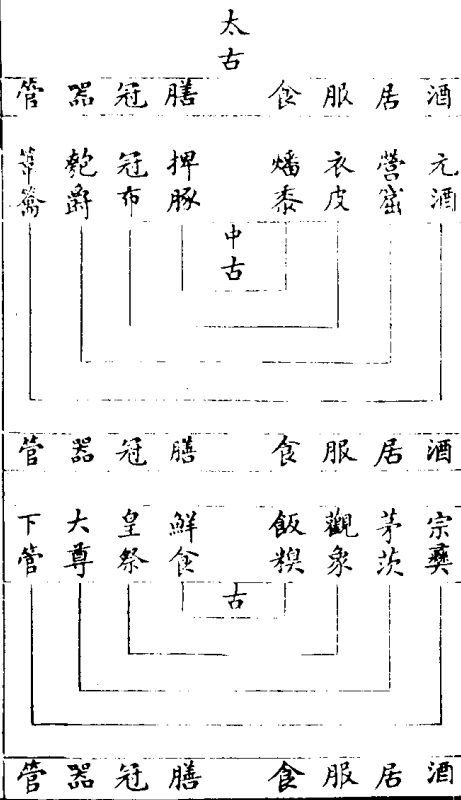 太古
酒
居
服
食
膳
冠
器
管
元酒
營窟
衣皮
燔黍
捭豚
冠布
匏爵
葦籥
中古
酒
居
服
食
膳
冠
器
管
宗彝
茅茨
觀象
飯糗
鮮食
皇祭
大尊
下管
古
酒
居
服
食
膳
冠
器
管